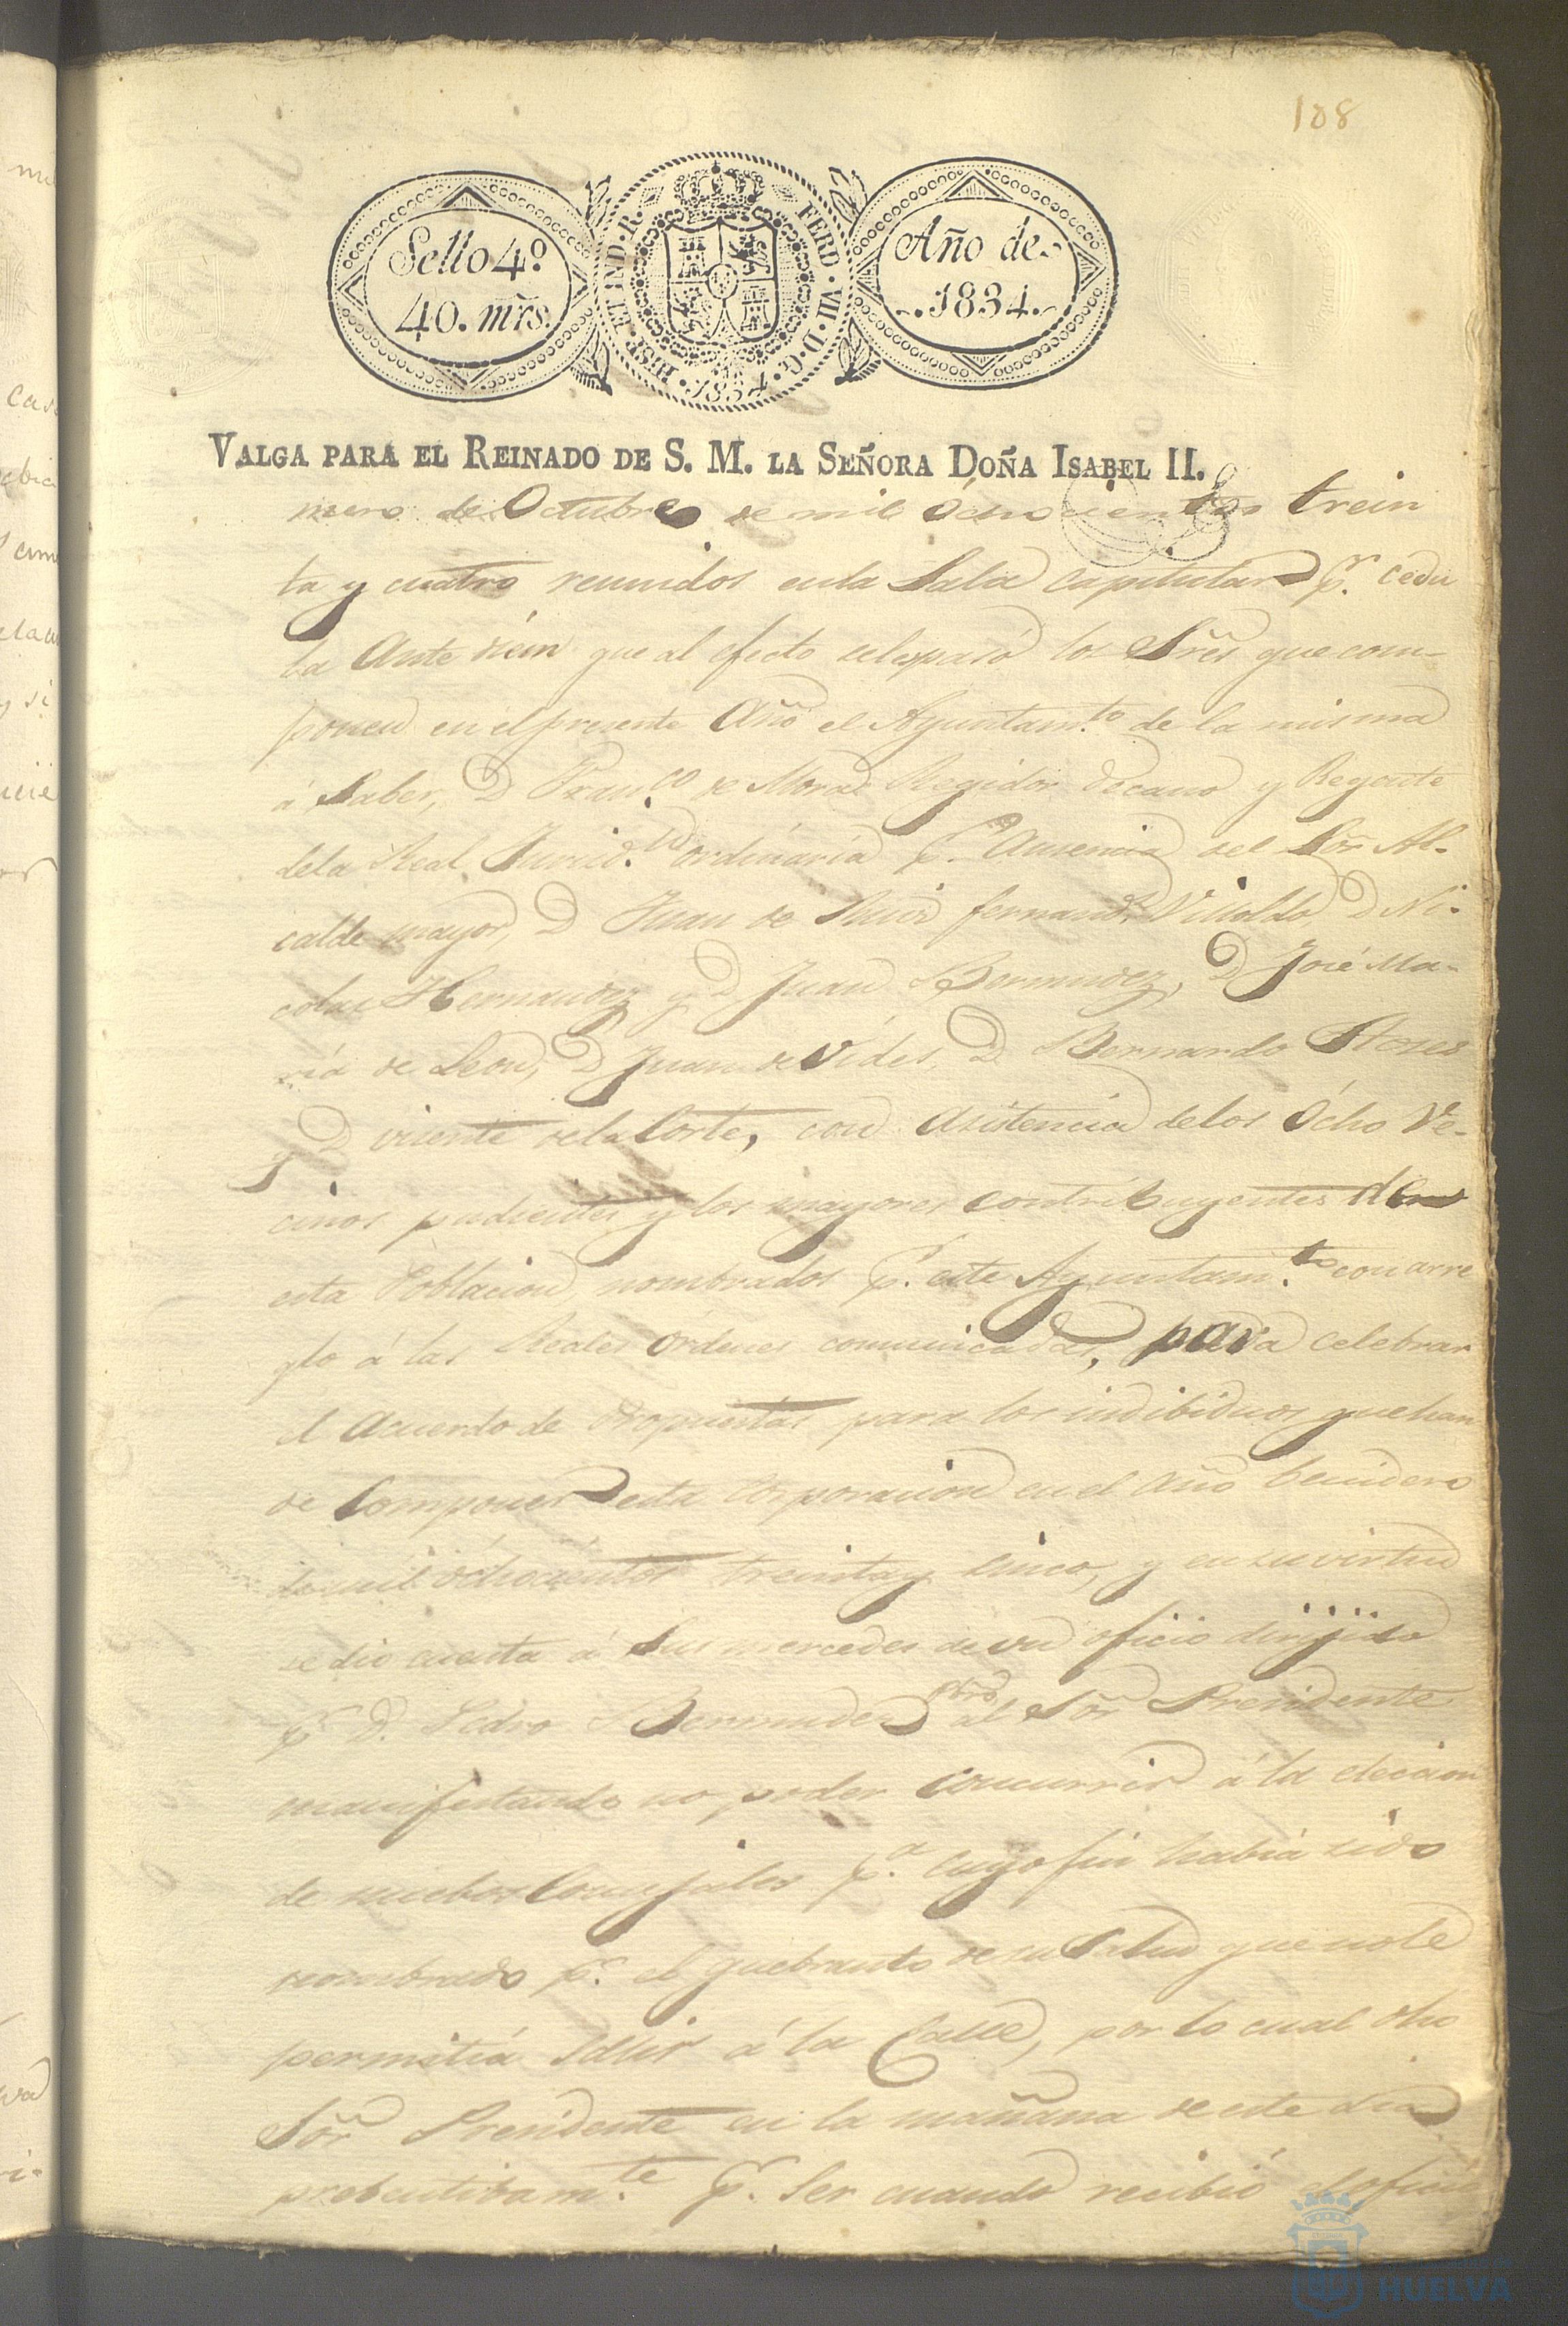 108
Sello 4º
40. mrs.
HISP. ET IND. R. FERD. VII. D. G. 1834.
Año de
1834.
VALGA PARA EL REINADO DE S. M. LA SEÑORA DOÑA ISABEL II.
mero de Octubre de mil Ochocientos trein
ta y cuatro reunidos en la Sala Capitular pr. cedu
la Ante diem que al efecto se les pasó los Sres que com-
ponen en el presente Año el Ayuntam.to de la misma
á Saber, D Fran.co de Mora Regidor Decano y Regente
de la Real Jurisd. ordinaria pr. Ausencia del Sor Al-
calde mayor, D Juan de fernand. D Ni-
colas Hernandez y D Juan Bermudez, D José Ma-
ria de Leon, D Juan de Vides, D Bernardo Flores
y D vicente de la Corte, con Asistencia de los Ocho Ve-
cinos pudientes y los mayores contribuyentes de
esta Poblacion, nombrados pr. este Ayuntam.to con arre
glo á las Reales Ordenes comunicadas, para celebrar
el Acuerdo de Propuestas para los indibiduos que han
de Componer esta Corporacion en el Año benidero
de mil ochocientos treinta y Cinco, y en su virtud
se dio cuenta á Sus mercedes de un oficio dirijido
pr D. Pedro Bermudez pbro al Sor Presidente
manifestando no poder Concurrir á la eleccion
de nuebos Concejales pa. Cuyo fin habia sido
nombrado pr. el quebranto de su Salud que no le
permitia Salir á la Calle, por lo cual dho
Sor Presidente en la mañana de este dia
prebentibam.te pr. Ser cuando recibió el oficio
HUELVA